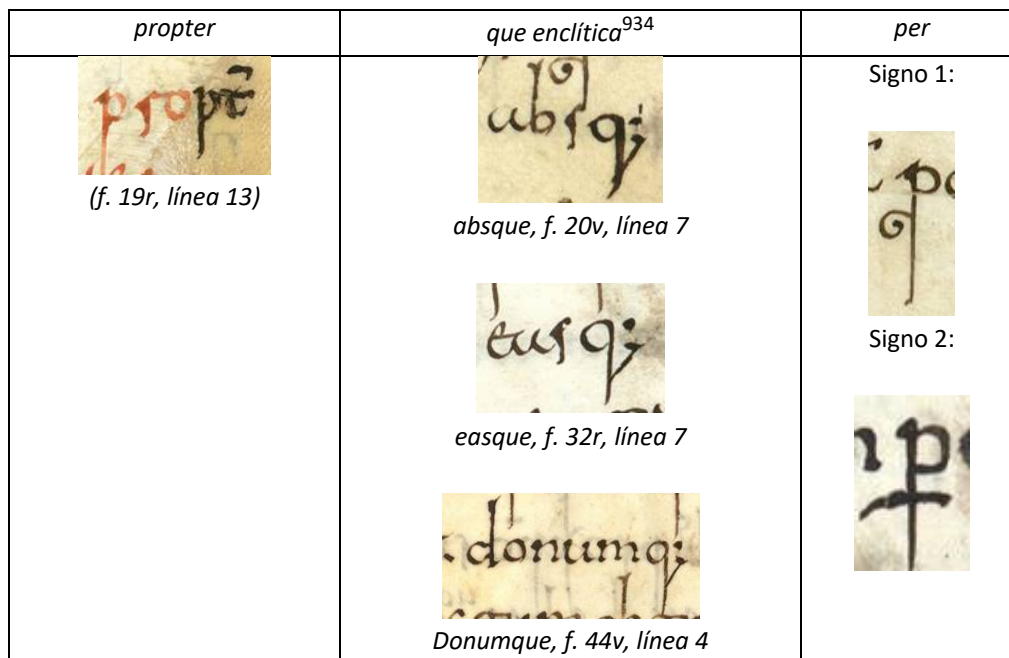 propter
que enclítica934
per
proptr̄
(f. 19r, línea 13)
absq;
absque, f. 20v, línea 7
easq;
easque, f. 32r, línea 7
donumq;
Donumque, f. 44v, línea 4
Signo 1:
Signo 2: